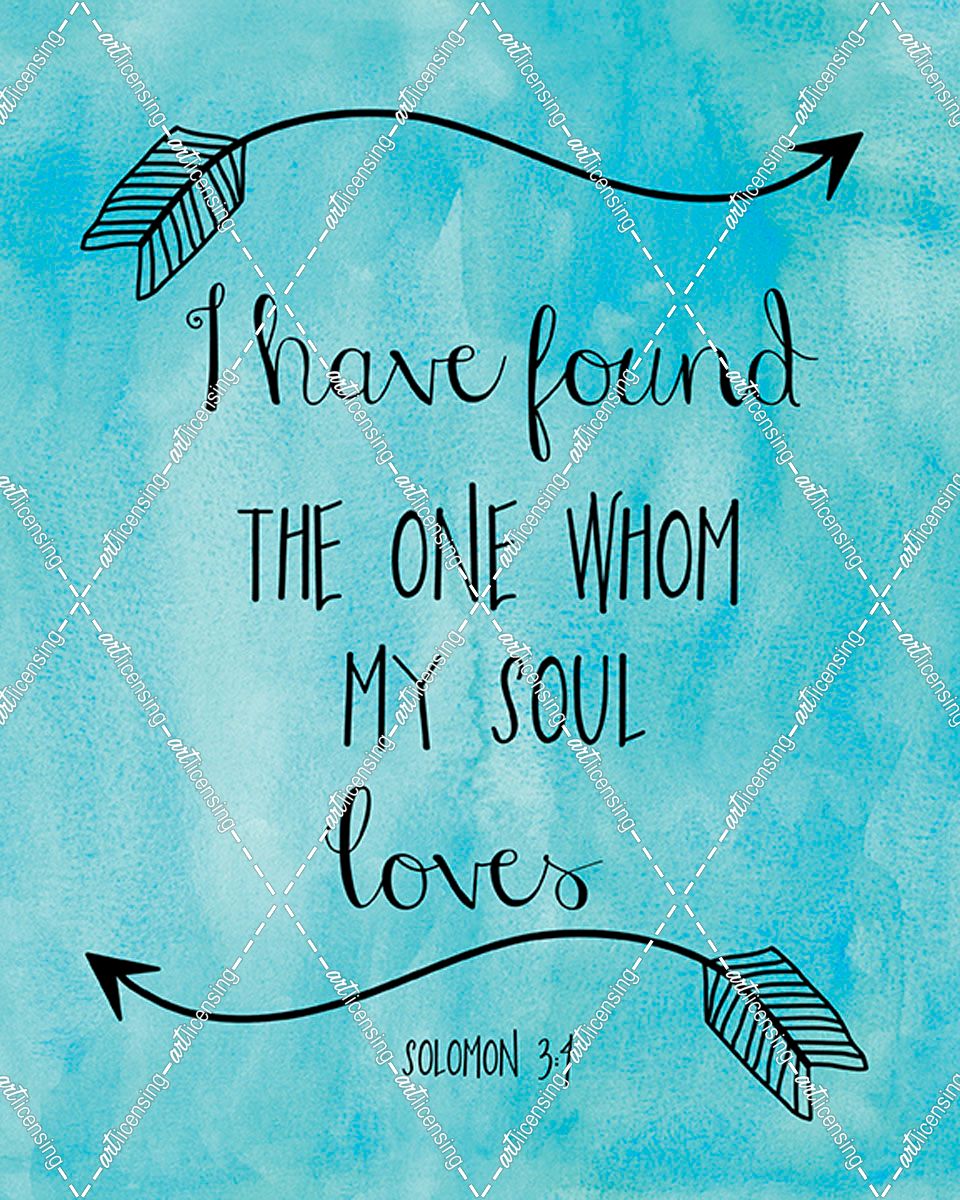 I have found
THE ONE WHOM
MY SOUL
loves
SOLOMON 3:4
artlicensing